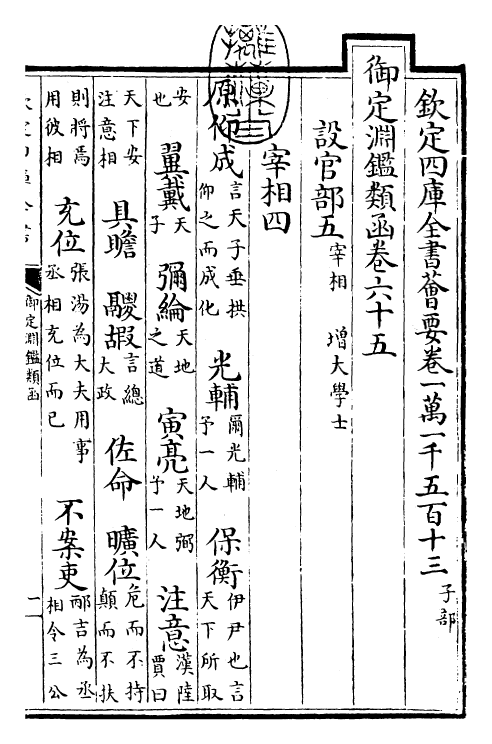 欽定四庫全書薈要卷一萬一千五百十三 子部
御定淵鑑類函卷六十五
設官部五 宰相 增大學士
宰相四
原仰成 言天子垂拱仰之而成化 光輔 爾光輔予一人 保衡 伊尹也言天下所取
安也 翼戴 天子 彌綸 天地之道 寅亮 天地弼予一人 注意 漢陸賈曰
天下安注意相 具瞻 鬷嘏 言總大政 佐命 曠位 危而不持顛而不扶
則將焉用彼相 充位 張湯為大夫用事丞相充位而已 不案吏 邴吉為丞相令三公
御定淵鑑類函
一